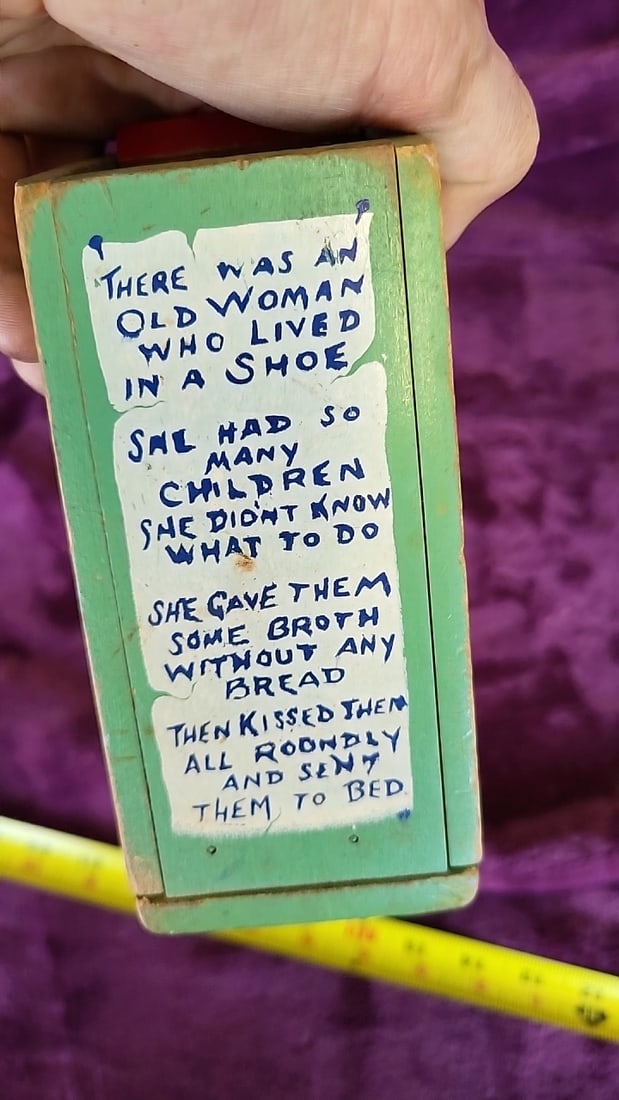 THERE WAS AN
OLD WOMAN
WHO LIVED
IN A SHOE
SHE HAD SO
MANY
CHILDREN
SHE DIDN'T KNOW
WHAT TO DO
SHE GAVE THEM
SOME BROTH
WITHOUT ANY
BREAD
THEN KISSED THEM
ALL ROONDLY
AND SENT
THEM TO BED